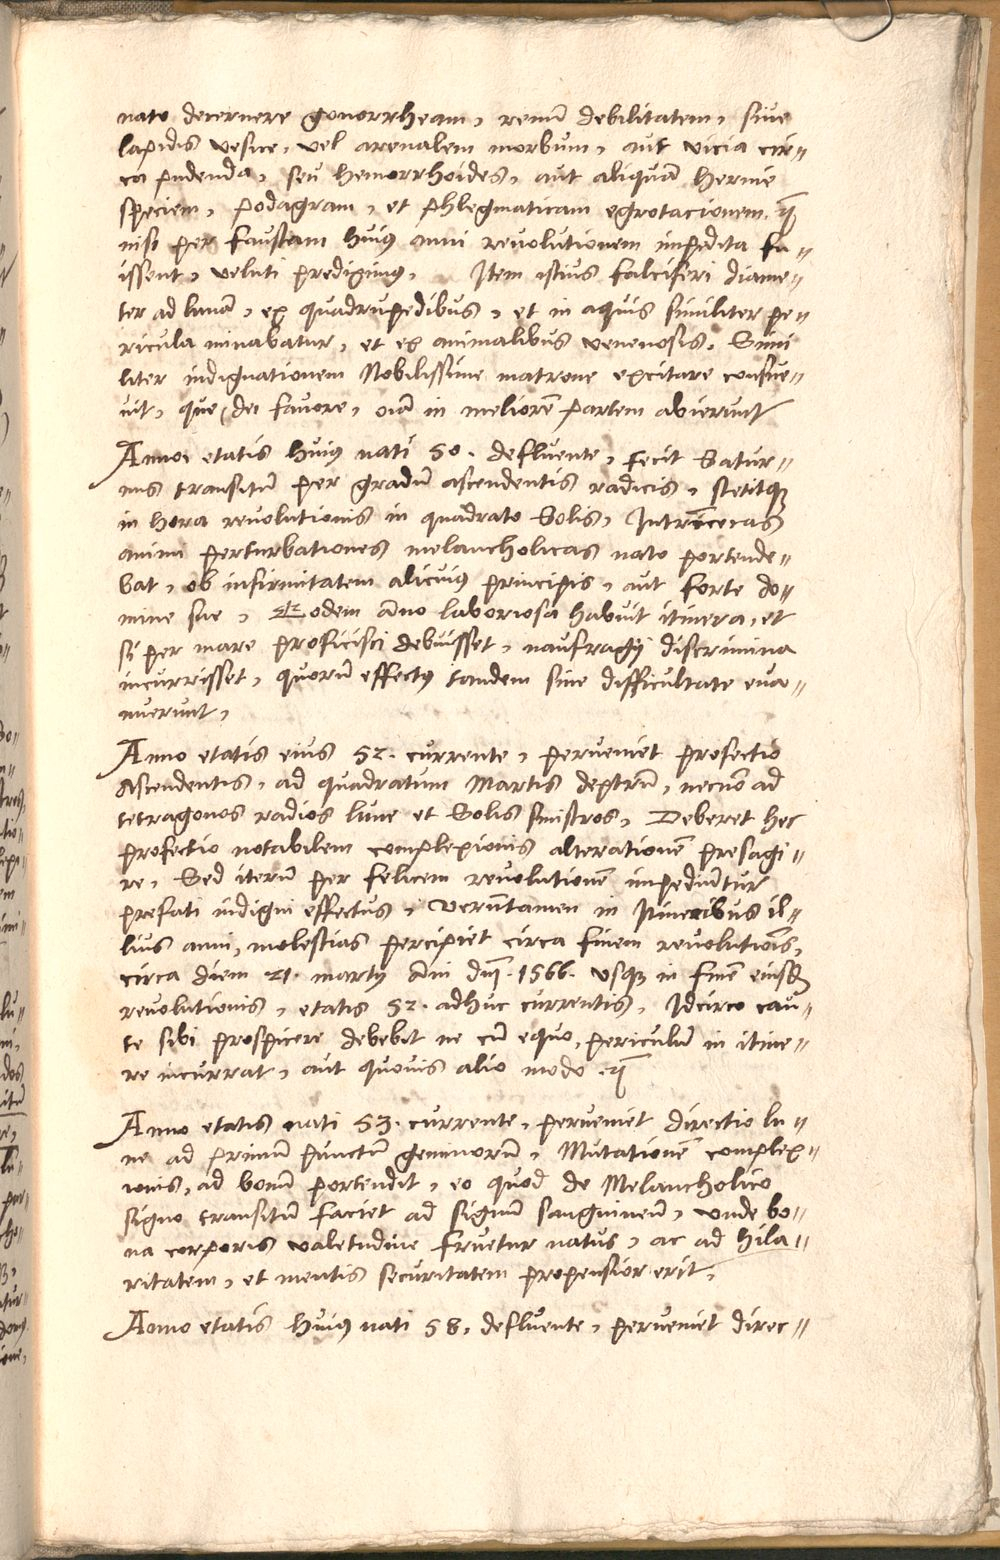 nato decernere gonorrheam, renũ debilitatem, siue
lapidis vesice, vel arenalem morbum, aut vicia cir=
ca pudenda, seu hemorrhoides, aut aliquã hernie
speciem, podagram, et phlegmaticam egrotacionem.
nisi per faustam huiꝰ anni revolutionem impedita fu=
issent, veluti prediximꝰ. Item istius falciferi diame=
ter ad lunã, ex quadrupedibus, et in aquis similiter pe=
ricula minabatur, et ex animalibus venenosis. Simi
liter indignationem Nobilissime matrone excitare consue=
uit, que, dei favore, oĩa in meliorẽ partem abierunt
Anno etatis huiꝰ nati 50. defluente, fecit Satur=
nus transitũ per gradũ ascendentis radicis, stetitqꝫ
in hora revolutionis in quadrato Solis, Intrinsecas
animi perturbationes melancholicas nato portende=
bat, ob infirmitatem alicuiꝰ principis, aut forte do=
mine sue, Eodem ãno laboriosa habuit itinera, et
si per mare proficisci debuisset, naufragÿ discrimina
incurrisset, quorũ effectꝰ tandem sine difficultate eua=
nuerunt,
Anno etatis eius 52. currente, perveniet profectio
Ascendentis, ad quadratum Martis dextrũ, necnõ ad
tetragonos radios lune et Solis sinistros, Deberet hec
profectio notabilem complexionis alterationẽ presagi=
re, Sed iterũ per felicem revolutionẽ impediũtur
prefati indigni effectus, verũtamen in Itineribus il=
lius anni, molestias percipiet circa finem revolutiõis,
circa diem 21. martÿ Ãni dñj. 1566. vsqꝫ in finẽ eiusdẽ
revolutionis, etatis 52. adhuc currentis, Idcirco cau=
te sibi prospicere debebit ne cũ equo, periculũ in itine=
re incurrat, aut quovis alio modo.
Anno etatis nati 53. currente, perveniet directio lu=
ne ad primũ punctũ geminorũ, Mutationẽ complex=
ionis, ad bonũ portendit, eo quod de Melancholico
signo transitũ faciet ad signũ sanguineũ, vnde bo=
na corporis valetudine fruetur natus, ac ad hila=
ritatem, et mentis securitatem propensior erit,
Anno etatis huiꝰ nati 58, defluente, perveniet direc=